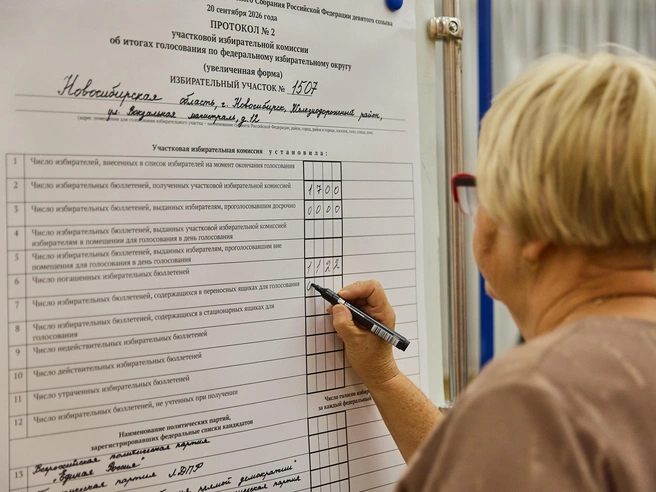 Собрания Российской Федерации девятого созыва
20 сентября 2026 года
ПРОТОКОЛ № 2
участковой избирательной комиссии
об итогах голосования по федеральному избирательному округу
(увеличенная форма)
ИЗБИРАТЕЛЬНЫЙ УЧАСТОК № 1507
Новосибирская область, г. Новосибирск, Железнодорожный район,
ул. Вокзальная магистраль, д.12
Участковая избирательная комиссия установила:
1 Число избирателей, внесенных в список избирателей на момент окончания голосования
2 Число избирательных бюллетеней, полученных участковой избирательной комиссией 1700
3 Число избирательных бюллетеней, выданных избирателям, проголосовавшим досрочно 0000
4 Число избирательных бюллетеней, выданных участковой избирательной комиссией
избирателям в помещении для голосования в день голосования
5 Число избирательных бюллетеней, выданных избирателям, проголосовавшим вне
помещения для голосования в день голосования
6 Число погашенных избирательных бюллетеней 1122
7 Число избирательных бюллетеней, содержащихся в переносных ящиках для голосования 0
8 Число избирательных бюллетеней, содержащихся в стационарных ящиках для
голосования
9 Число недействительных избирательных бюллетеней
10 Число действительных избирательных бюллетеней
11 Число утраченных избирательных бюллетеней
12 Число избирательных бюллетеней, не учтенных при получении
Наименование политических партий,
зарегистрировавших федеральные списки кандидатов
Число голосов
за каждый
13 Всероссийская политическая партия
"Единая Россия"
партия ЛДПР
прямой демократии"
партия